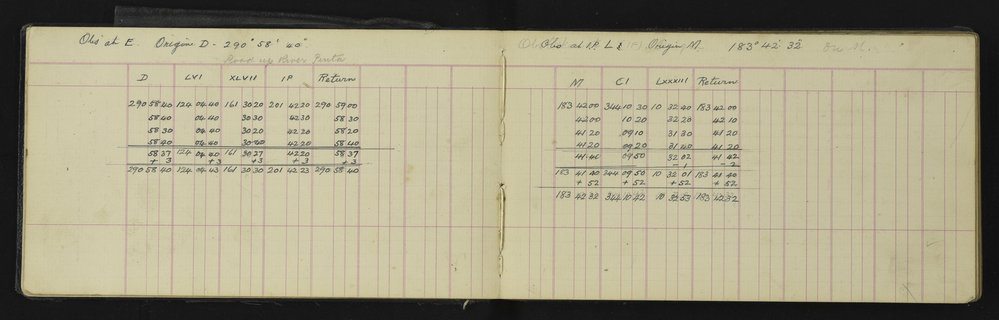 Obs at E. Origin D - 290° 58' 40"
Road up River Punta
D LVI XLVII IP Return
290 58 40 124 04 40 161 30 20 201 42 20 290 59 00
58 40 04 40 30 30 42 30 58 30
58 30 04 40 30 20 42 20 58 20
58 40 04 40 30 40 42 20 58 40
58 37 124 04 40 161 30 27 42 20 58 37
+ 3 + 3 + 3 + 3 + 3
290 58 40 124 04 43 161 30 30 201 42 23 290 58 40
Obs at IP. L Origin M 183° 42' 32"
M CI LXXXIII Return
183 42 00 344 10 30 10 32 40 183 42 00
42 00 10 20 32 20 42 10
41 20 09 10 31 30 41 20
41 20 09 20 31 40 41 20
41 40 09 50 32 02 41 42
- 1 - 2
183 41 40 344 09 50 10 32 01 183 41 40
+ 52 + 52 + 52 + 52
183 42 32 344 10 42 10 32 53 183 42 32